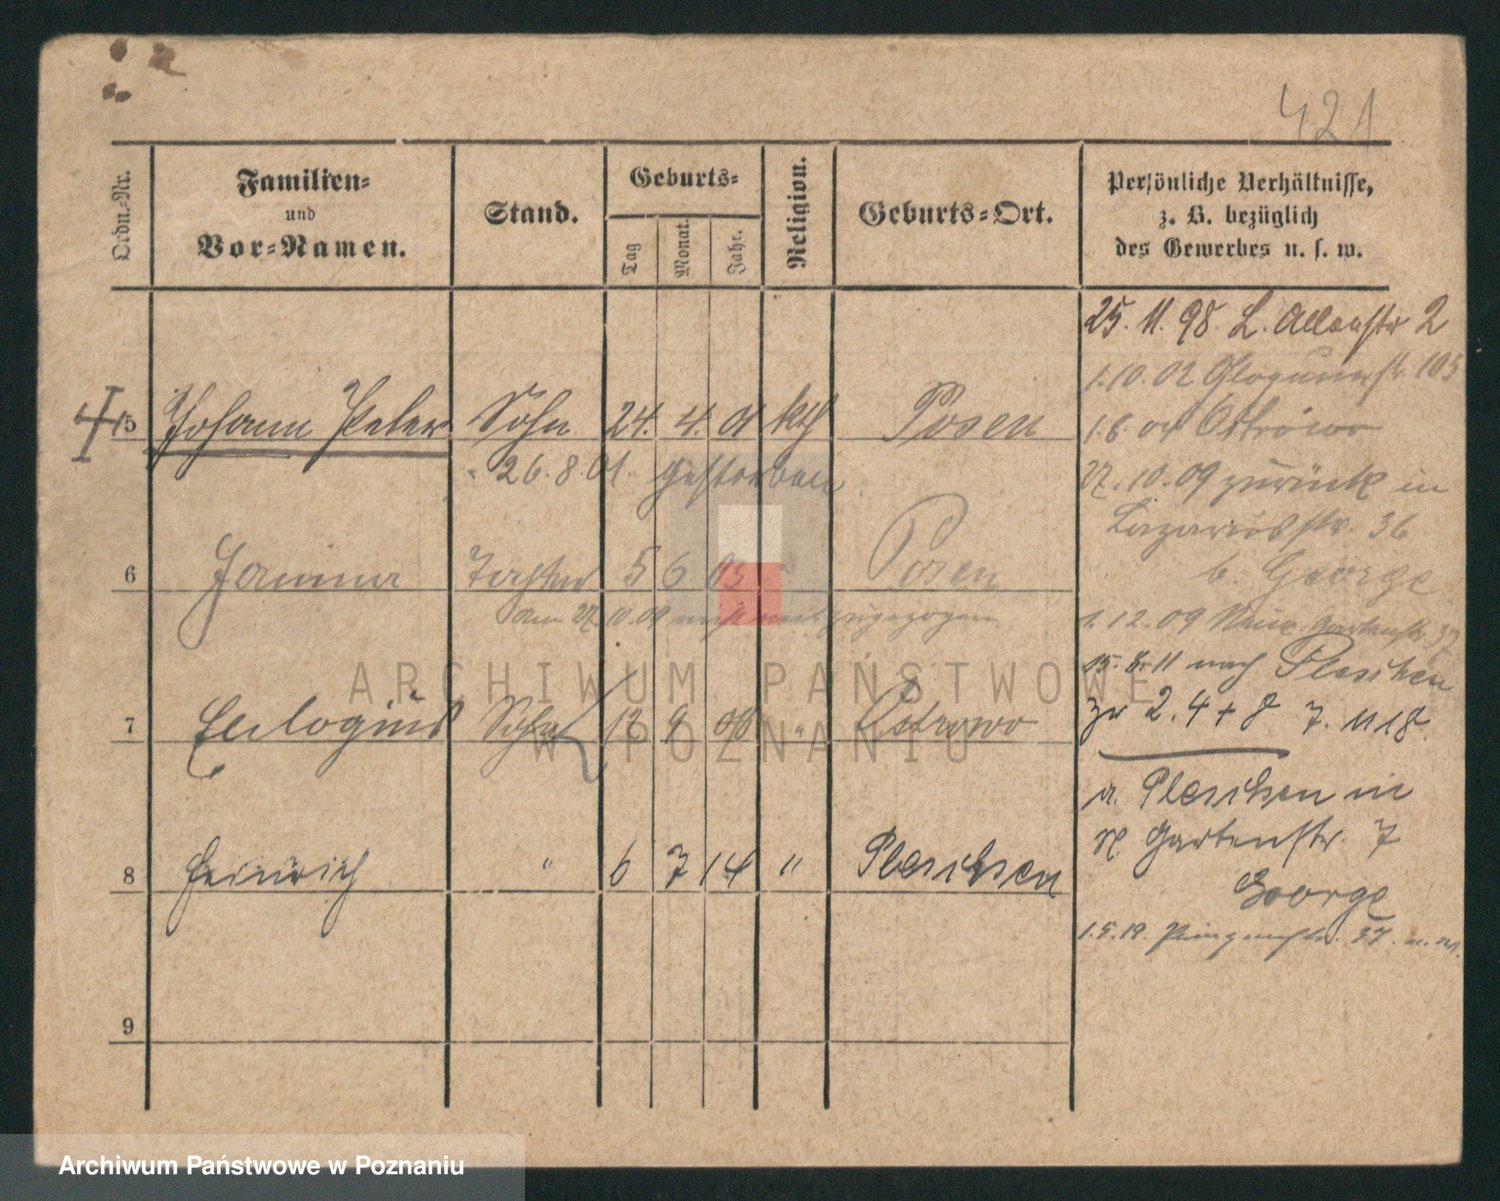 421
Ordn.-Nr.
Familien-
und
Vor-Namen.
Stand.
Geburts-
Tag
Monat.
Jahr.
Religion.
Geburts-Ort.
Persönliche Verhältnisse,
z. B. bezüglich
des Gewerbes u. s. w.
25. 11. 98. L. Allee str 2
1.10.02 Glogauerstr 105
5 Johann Peter Sohn 24. 4. 01 kth Posen
1.6 04 Ostrowo
26.8.01. gestorben
27.10.09 zurück in
Lazarusstr. 36
6 Janina Tochter 5 6 03 Posen
b. George
am 27.10.09 nicht mit zugezogen
1.12.09 Gartenstr.
15. 8. 11 nach Pleschen
7 Eulogius Sohn 12 9 " Ostrowo
zu 2. 4 + 8 7. 11 18.
v. Pleschen in
Gartenstr. 7
8 Heinrich " 6 7 14 " Pleschen
George
1.5.19. 37.
9
ARCHIWUM PAŃSTWOWE
W POZNANIU
Archiwum Państwowe w Poznaniu